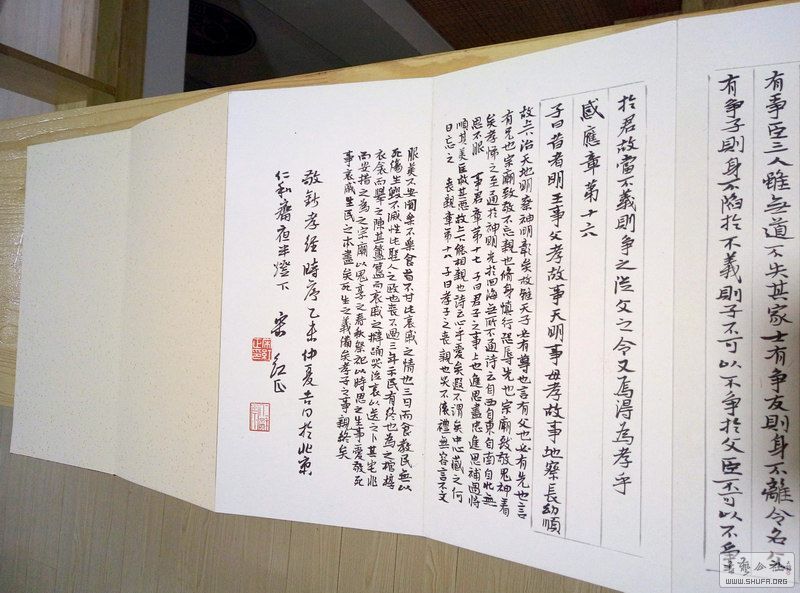 有争臣三人雖无道不失其家士有争友則身不離令名父
有争子則身不陷於不義則子不可以不争於父臣不可以不争
於君故當不義則争之從父之令又焉得為孝乎
感應章第十六
子曰昔者明王事父孝故事天明事母孝故事地察長幼順
故上下治天地明察神明彰矣故雖天子必有尊也言有父也必有先也言
有兄也宗廟致敬不忘親也修身慎行恐辱先也宗廟致敬鬼神著
矣孝悌之至通於神明光於四海無所不通詩云自西自東自南自北無
思不服 事君章第十七 子曰君子之事上也進思盡忠退思補過將
順其美匡救其惡故上下能相親也詩云心乎愛矣遐不謂矣中心藏之何
日忘之 喪親章第十八 子曰孝子之喪親也哭不偯禮無容言不文
服美不安聞樂不樂食旨不甘此哀戚之情也三日而食教民無以
死傷生毀不滅性此聖人之政也喪不過三年示民有終也為之棺槨
衣衾而舉之陳其簠簋而哀戚之擗踊哭泣哀以送之卜其宅兆
而安措之為之宗廟以鬼享之春秋祭祀以時思之生事愛敬死
事哀戚生民之本盡矣死生之義備矣孝子之事親終矣
敬録孝經時序乙未仲夏吉日於北京
仁和齋夜半燈下
宋
WWW.SHUFA.ORG